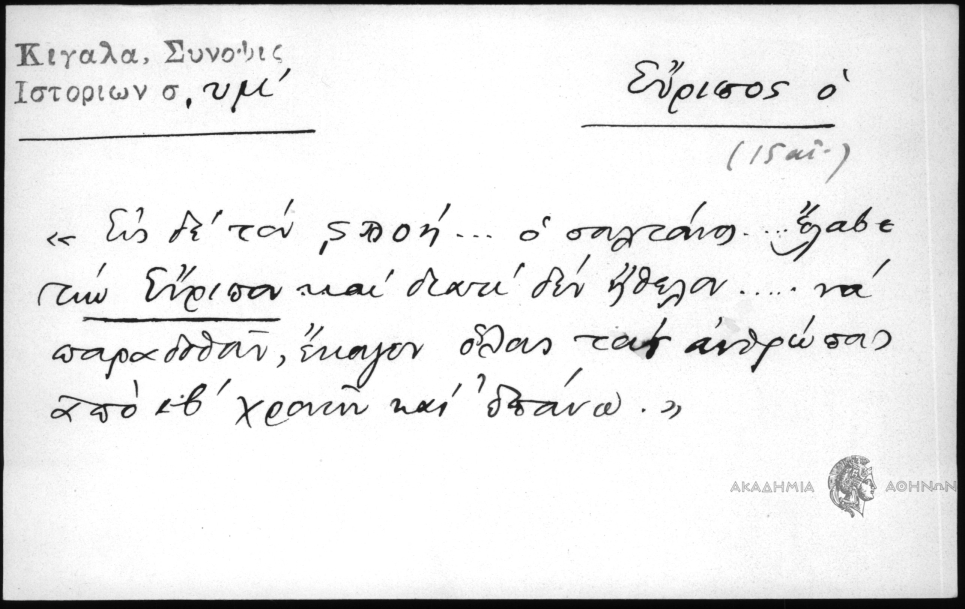 Κιγαλα, Συνοψις
Ιστοριων σ, υμα΄
Εὔριπος ὁ
(15 αἰ.)
« Εἰς δὲ τὸν ͵ϛϡοή... ὁ σουλτάνος.... ἔλαβε
τὴν Εὔριπον καὶ διατὶ δὲν ἤθελαν ..... νὰ
παραδοθοῦν, ἔκαψεν ὅλους τοὺς ἀνθρώπους
ἀπὸ ιβ΄ χρονῶν καὶ ἐπάνω. »
ΑΚΑΔΗΜΙΑ ΑΘΗΝΩΝ